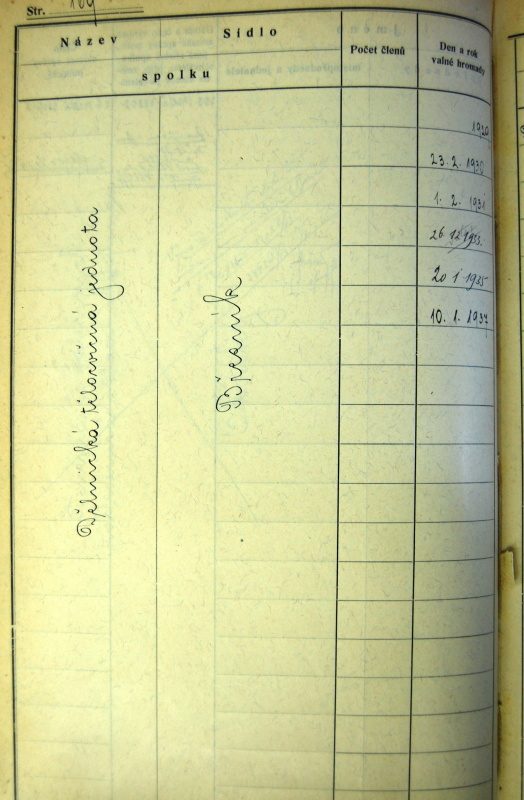 Str. 109
Název
Sídlo
spolku
Počet členů
Den a rok
valné hromady
Dělnická tělocvičná jednota
1920
23. 2. 1930
1. 2. 1931
26 12 1933.
20 1 1935
10. 1. 1937